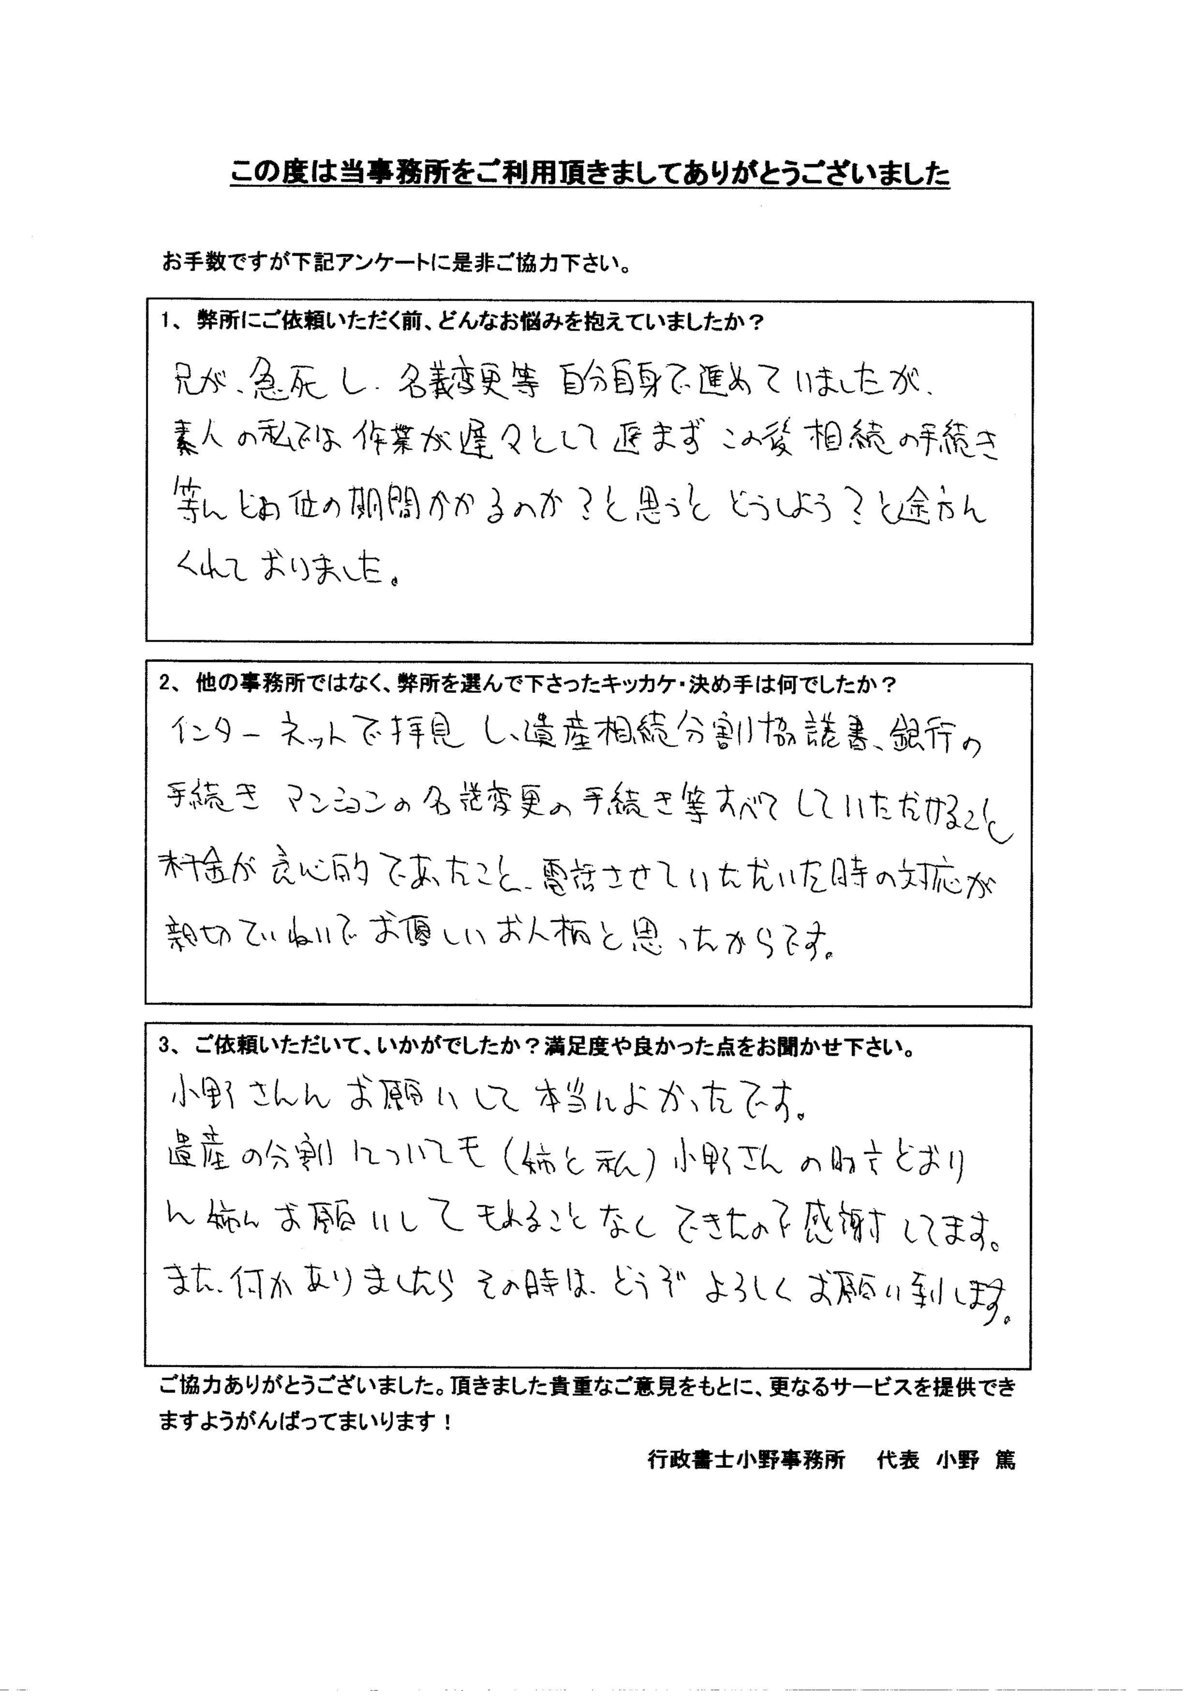 この度は当事務所をご利用頂きましてありがとうございました
お手数ですが下記アンケートに是非ご協力下さい。
1、弊所にご依頼いただく前、どんなお悩みを抱えていましたか？
兄が、急死し、名義変更等 自分自身で進めていましたが、
素人の私では作業が遅々として進まず この後 相続の手続き
等に どの位の期間かかるのか？と思うと どうしよう？と途方に
くれて おりました。
2、他の事務所ではなく、弊所を選んで下さったキッカケ・決め手は何でしたか？
インターネットで拝見し、遺産相続分割協議書、銀行の
手続き マンションの名義変更の手続き等すべてしていただけること
料金が良心的であったこと、電話させていただいた時の対応が
親切ていねいでお優しいお人柄と思ったからです。
3、ご依頼いただいて、いかがでしたか？満足度や良かった点をお聞かせ下さい。
小野さんに お願いして 本当によかったです。
遺産の分割についても（姉と私）小野さんの どおり
に 姉に お願いして もめることなくできたので感謝してます。
また、何かありましたら その時は、どうぞ よろしくお願い致します。
ご協力ありがとうございました。頂きました貴重なご意見をもとに、更なるサービスを提供でき
ますようがんばってまいります！
行政書士小野事務所 代表 小野 篤